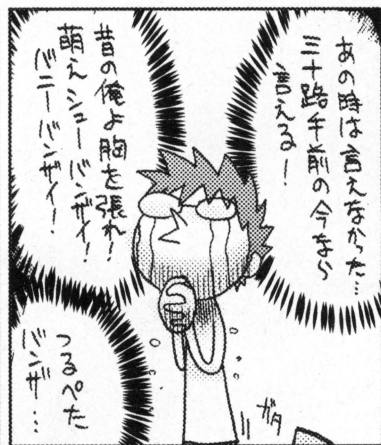 あの時は言えなかった…
三十路手前の今なら
言える!
昔の俺よ胸を張れ!
萌えシューバンザイ!
バニーバンザイ!
つるぺた
バンザ…
ガタ